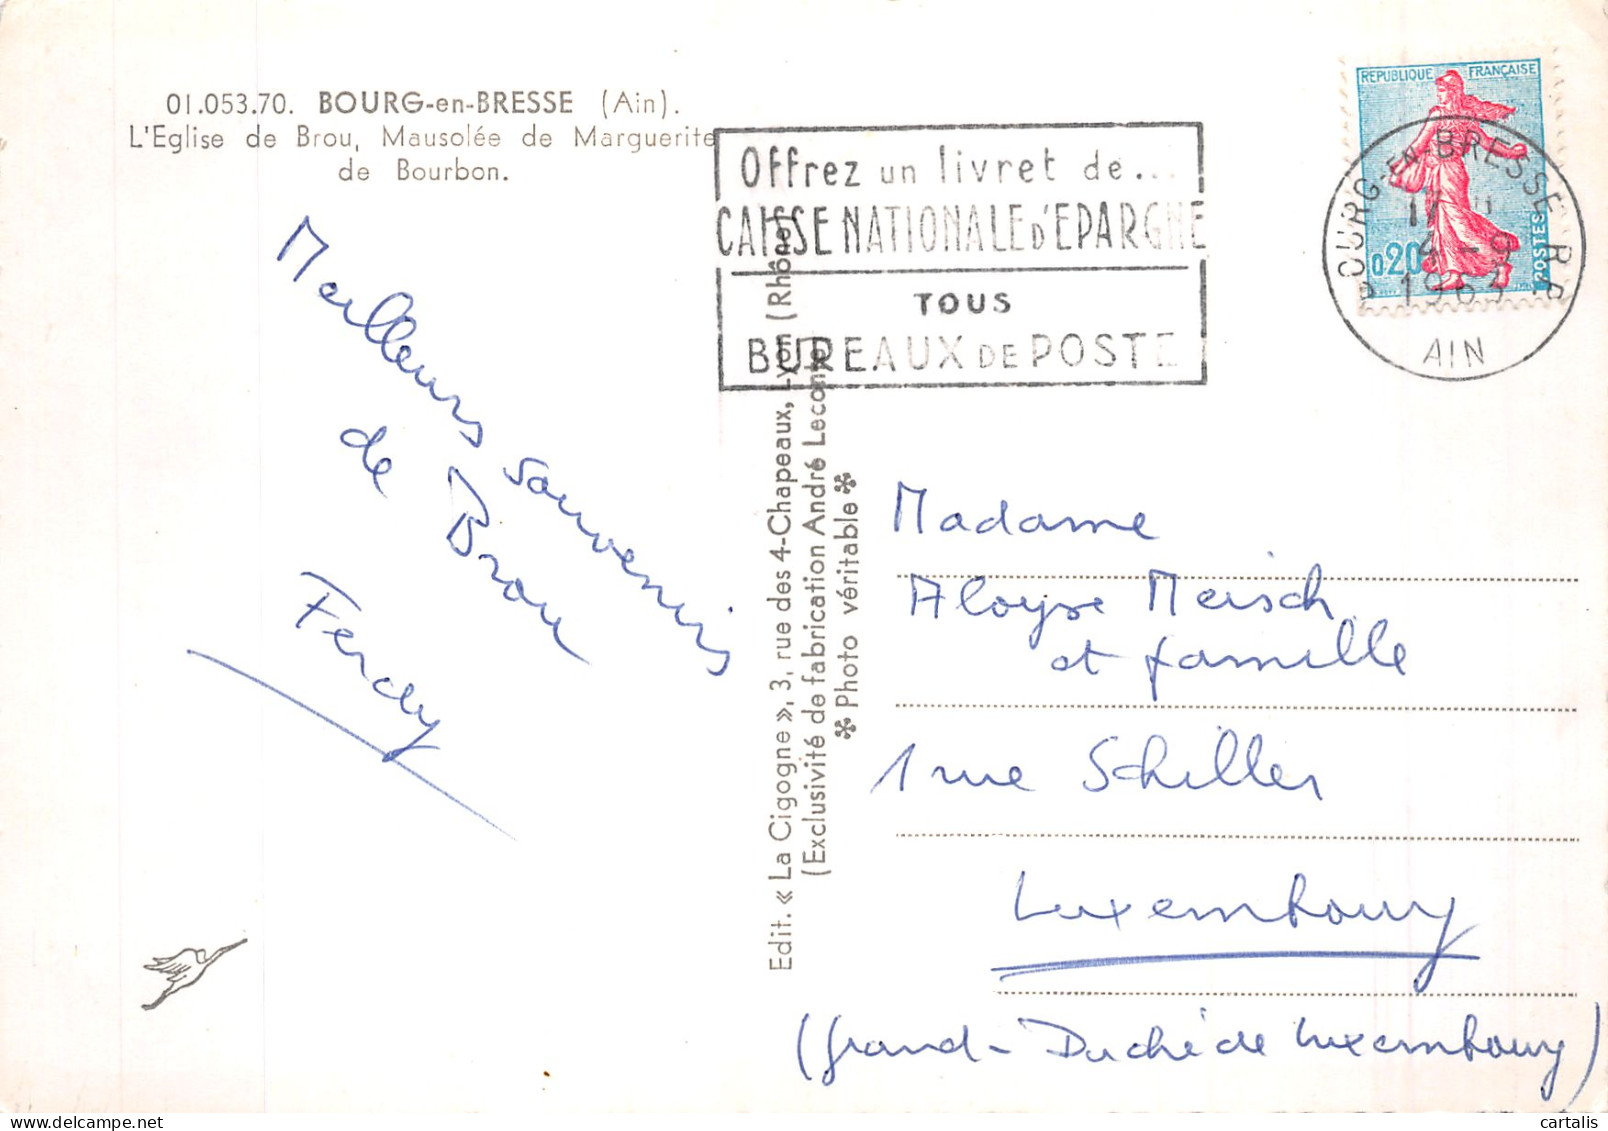 01.053.70. BOURG-en-BRESSE (Ain).
L'Eglise de Brou, Mausolée de Marguerite
de Bourbon.
Offrez un livret de...
CAISSE NATIONALE D'EPARGNE
TOUS
BUREAUX DE POSTE
REPUBLIQUE FRANÇAISE
0,20
POSTES
BOURG-EN-BRESSE R.P.
17 H
4-9
1963
AIN
Meilleurs souvenirs
de Brou
Ferdy
Edit. « La Cigogne », 3, rue des 4-Chapeaux, Lyon (Rhône)
(Exclusivité de fabrication André Leconte)
✻ Photo véritable ✻
Madame
Aloyse Meisch
et famille
1 rue Schiller
Luxembourg
(Grand-Duché de Luxembourg)
cartalis